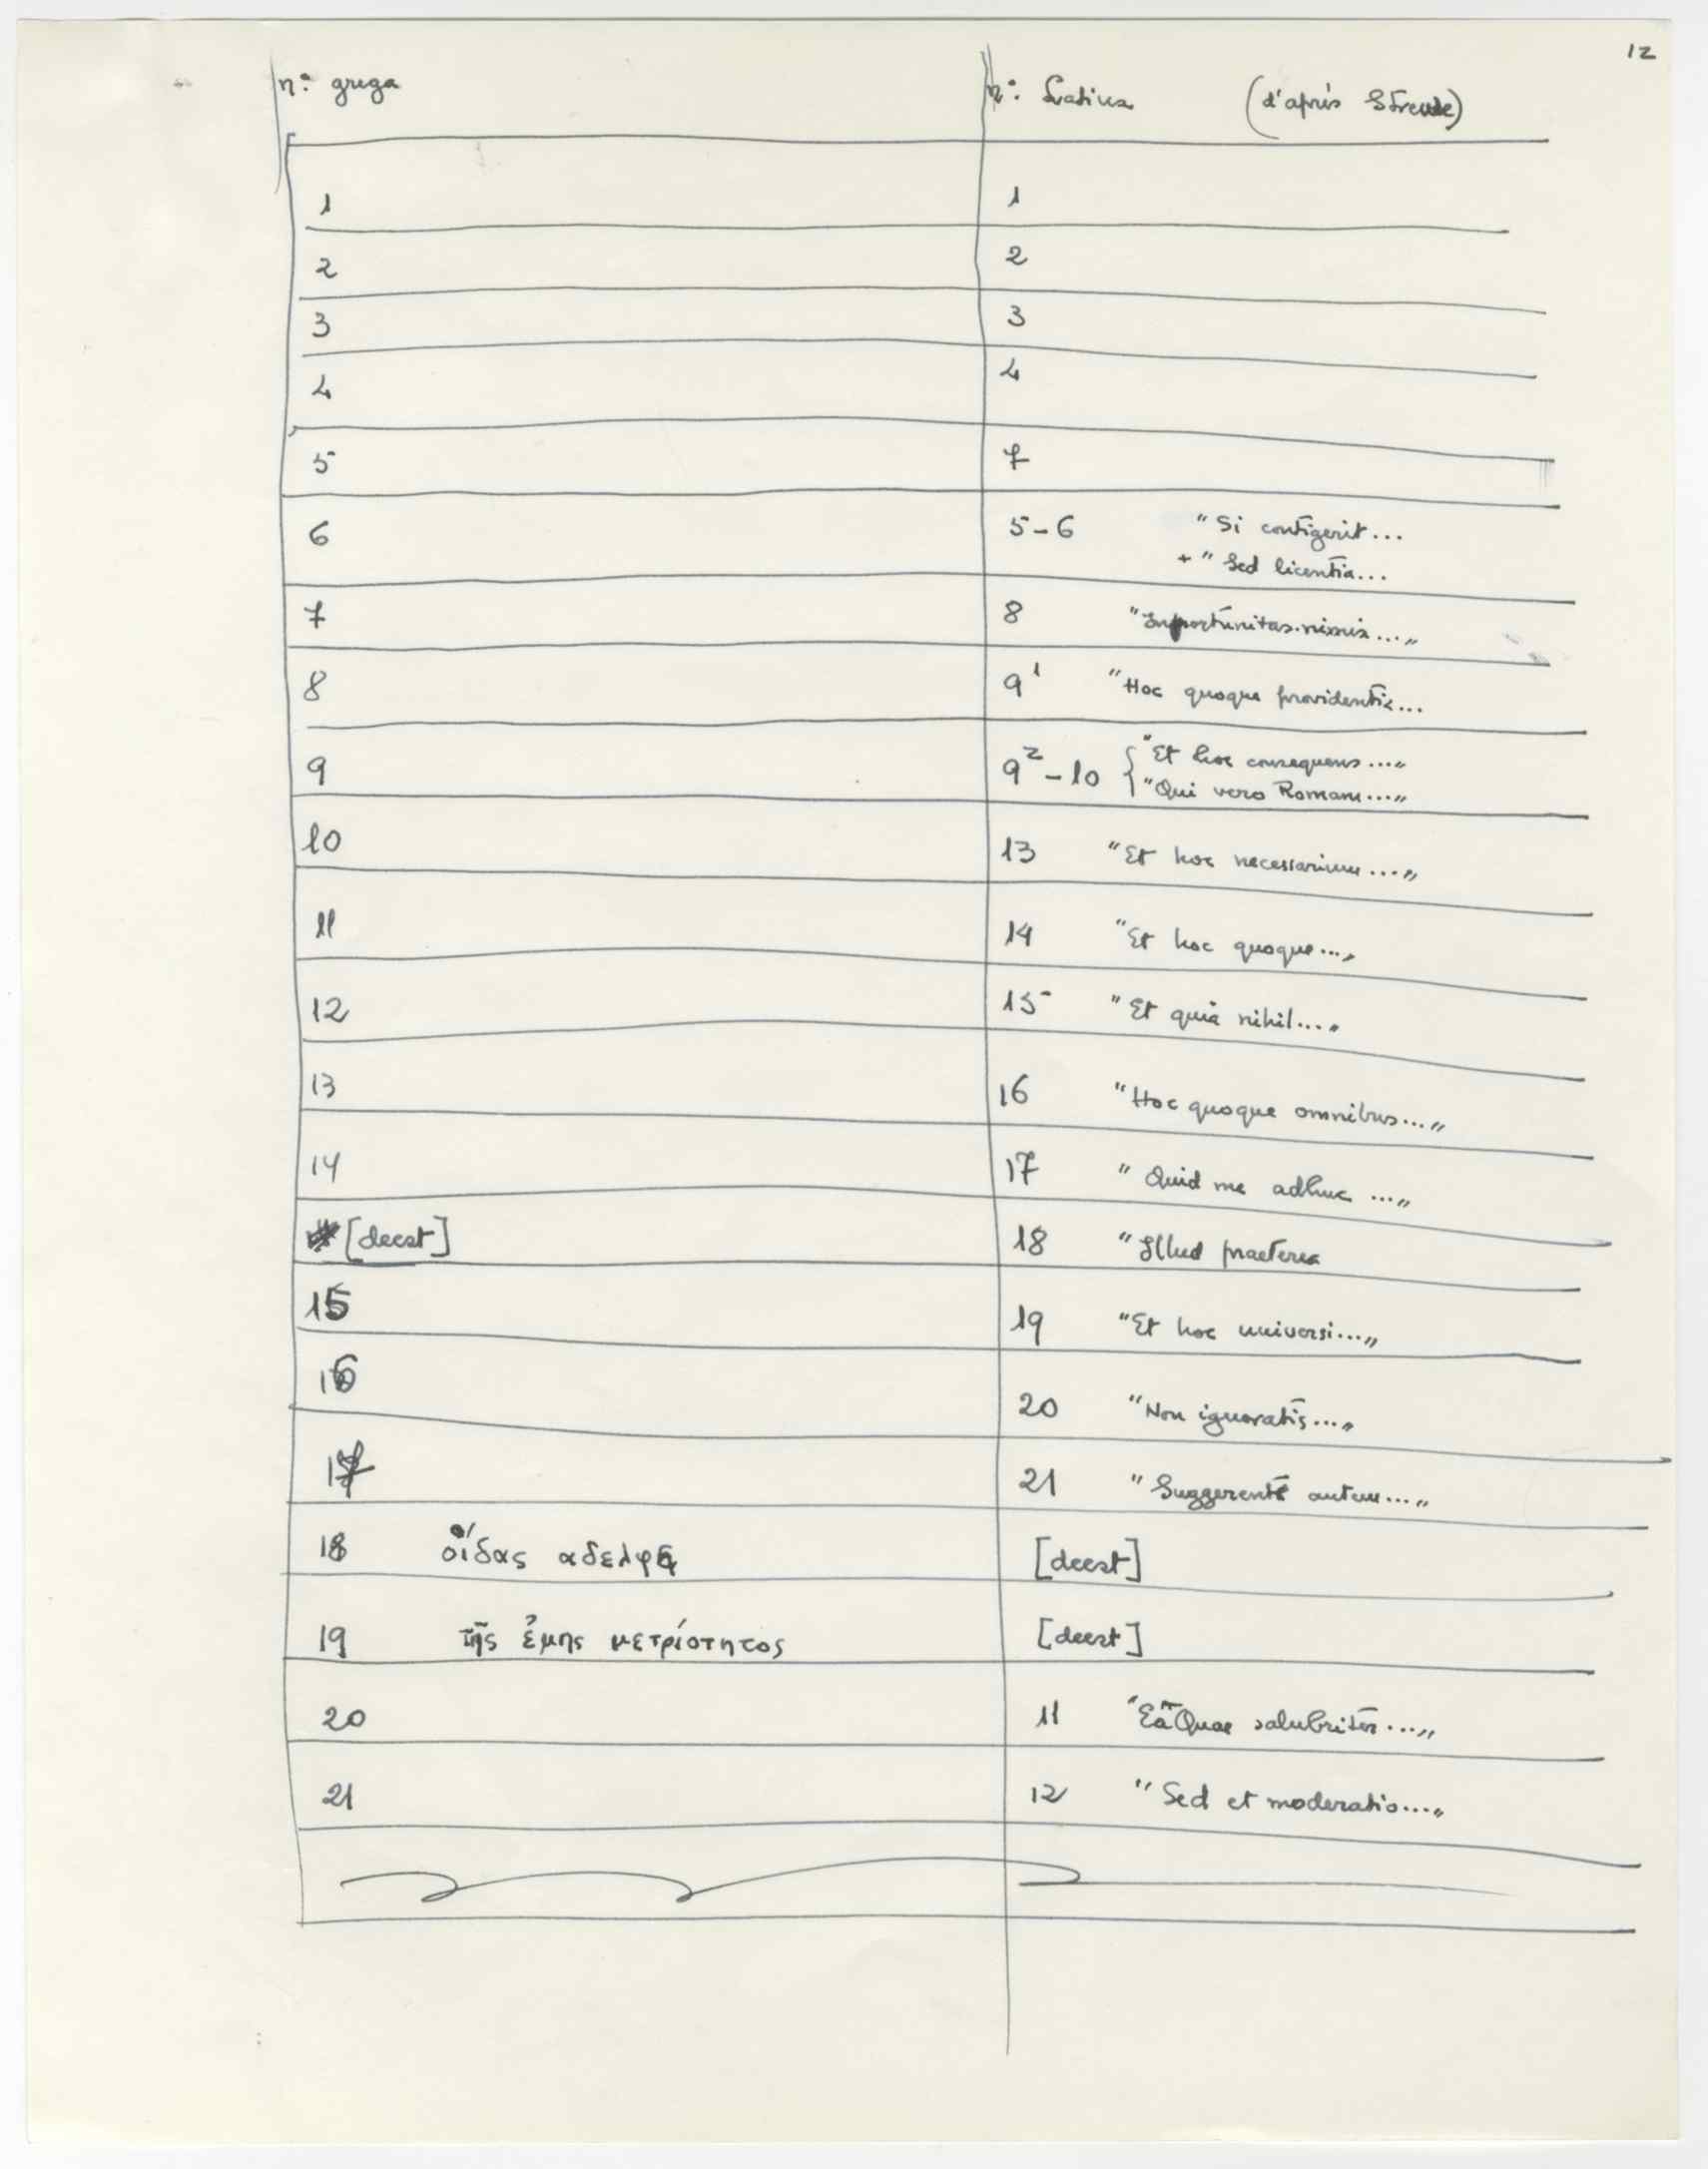 12
n.º grega n.º Latina (d'après Streuve)
1 1
2 2
3 3
4 4
5 7
6 5-6 "Si contigerit...
+ "Sed licentia...
7 8 "Importunitas nimia..."
8 9¹ "Hoc quoque providentia...
9 9²-10 { "Et hoc consequens..."
"Qui vero Romam..."
10 13 "Et hoc necessarium..."
11 14 "Et hoc quoque..."
12 15 "Et quia nihil..."
13 16 "Hoc quoque omnibus..."
14 17 "Quid me adhuc ..."
[deest] 18 "Illud praeterea
15 19 "Et hoc universi..."
16 20 "Non ignoratis..."
17 21 "Suggerente autem..."
18 οἴδας αδελφε [deest]
19 τῆς ἐμης μετρίοτητος [deest]
20 11 "Ea Quae salubriter..."
21 12 "Sed et moderatio..."